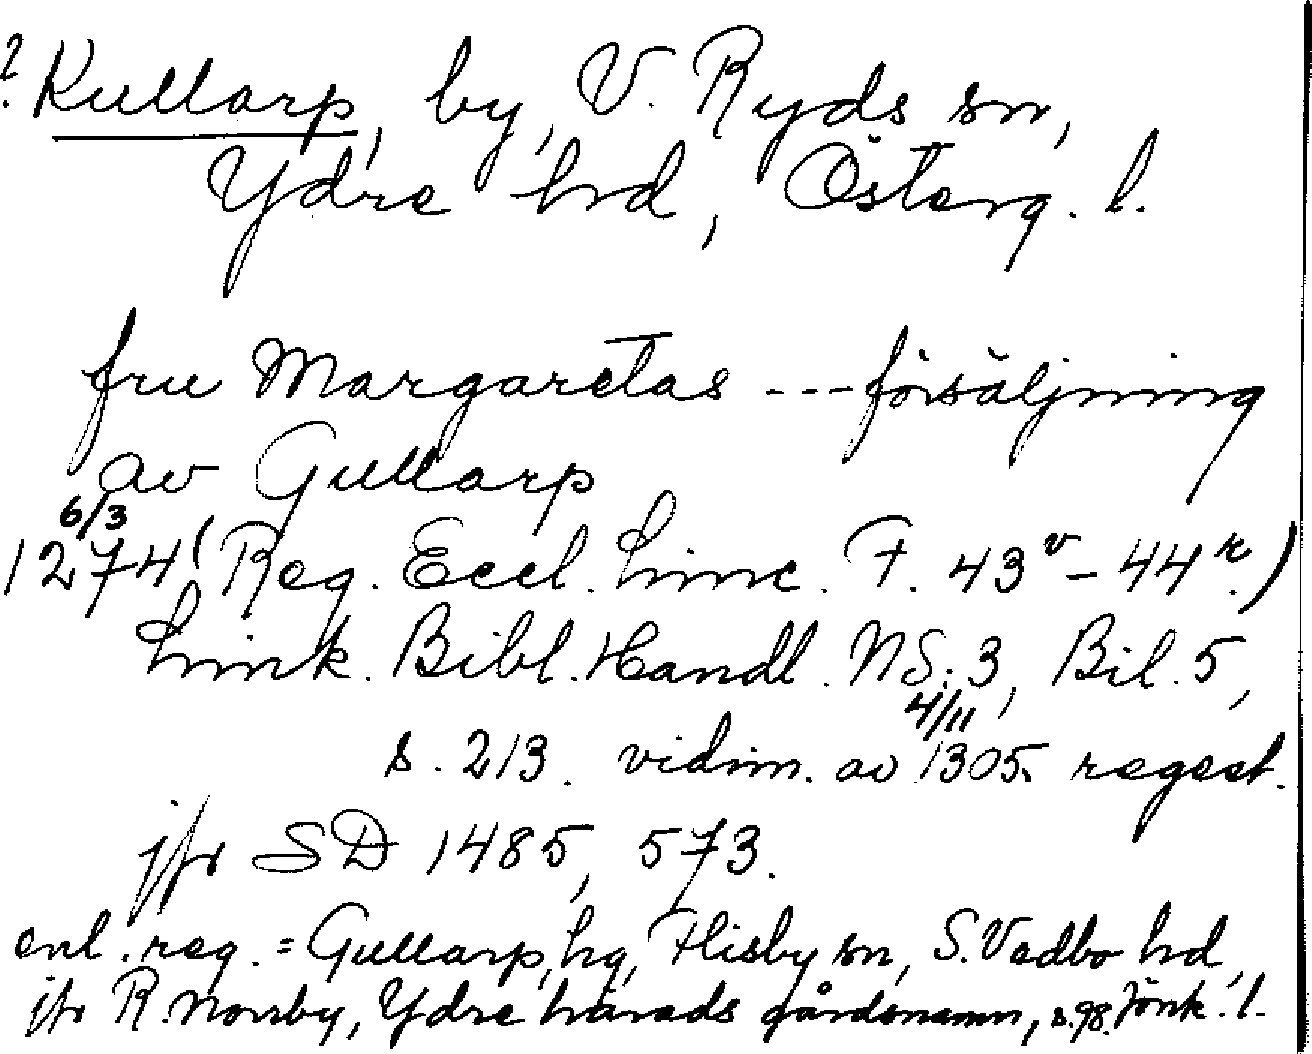 ? Kullarp, by, V. Ryds sn,
Ydre hd, Österg. l.
fru Margaretas --- försäljning
av Gullarp
6/3
1274 (Reg. Eccl. Linc. F. 43v - 44r.)
Link. Bibl. Handl. NS: 3, Bil. 5,
s. 213. vidim. av 4/11 1305. regest.
jfr SD 1485, 573.
enl. reg. = Gullarp, hg, Flisby sn, S. Vedbo hd,
jfr R. Norrby, Ydre härads gårdsnamn, s. 98. Jönk. l.